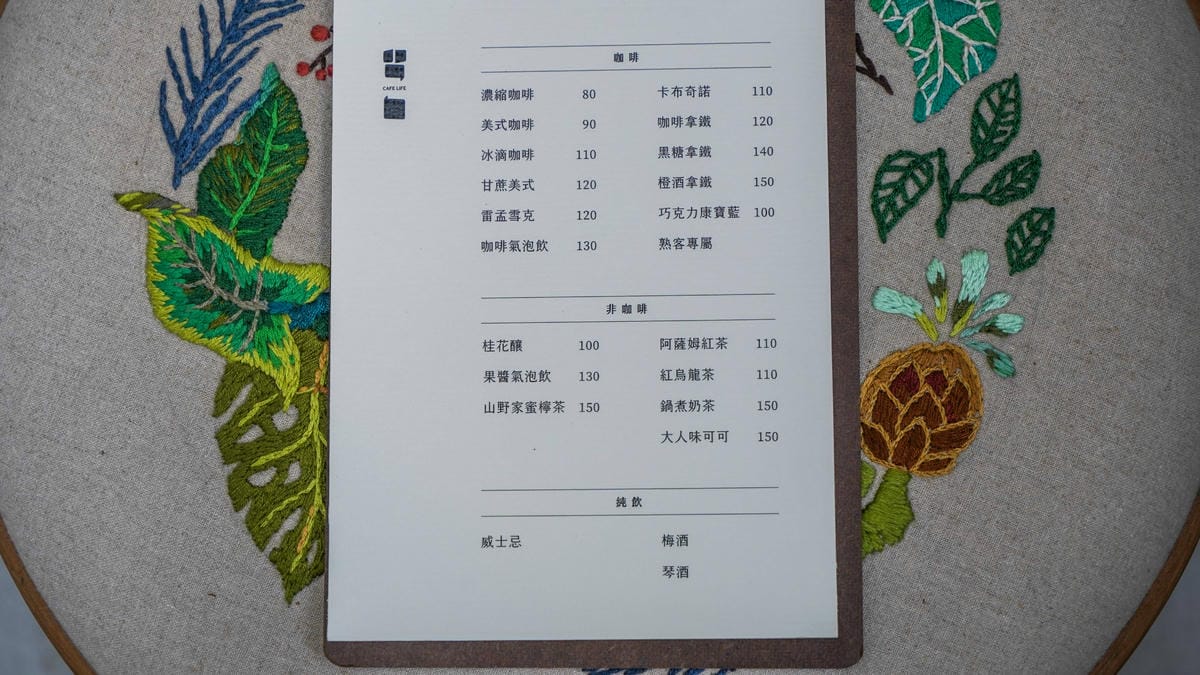 CAFE LIFE
咖啡
濃縮咖啡 80
美式咖啡 90
冰滴咖啡 110
甘蔗美式 120
雷孟雪克 120
咖啡氣泡飲 130
卡布奇諾 110
咖啡拿鐵 120
黑糖拿鐵 140
橙酒拿鐵 150
巧克力康寶藍 100
熟客專屬
非咖啡
桂花釀 100
果醬氣泡飲 130
山野家蜜檸茶 150
阿薩姆紅茶 110
紅烏龍茶 110
鍋煮奶茶 150
大人味可可 150
純飲
威士忌
梅酒
琴酒